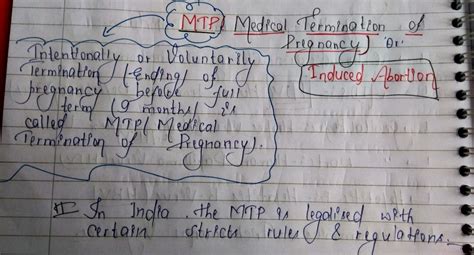 MTP / Medical Termination of
Pregnancy) or
Induced Abortion
Intentionally or Voluntarily
Termination (Ending) of
pregnancy before full
term (9 months) is
called MTP/ Medical
Termination of Pregnancy).
In India, the MTP is legalised with
certain stricts rules & regulations.